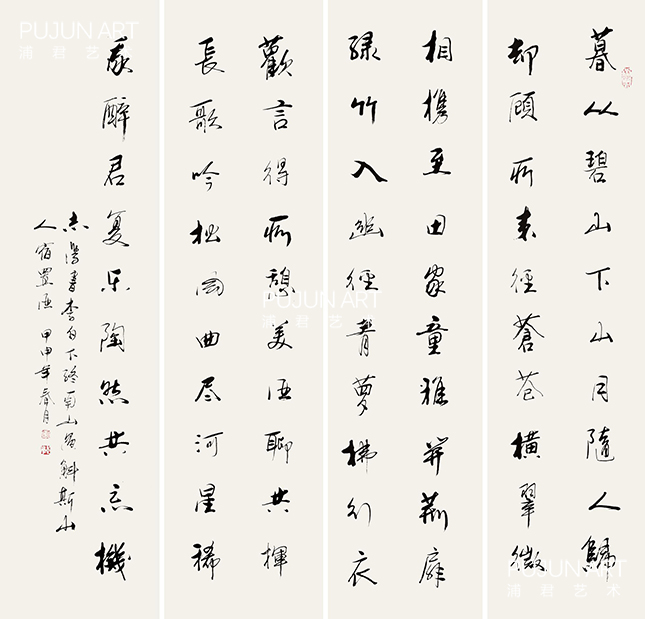 暮从碧山下山月隨人歸
却顧所来徑蒼苍横翠微
相携至田家童稚开荆扉
绿竹入幽徑青萝拂行衣
歡言得所憩美酒聊共揮
長歌吟松风曲尽河星稀
我醉君复乐陶然共忘機
書李白下終南山過斛斯山
人宿置酒 甲申年春月
PUJUN ART
浦君艺术
PUJUN ART
浦君艺术
PUJUN ART
浦君艺术